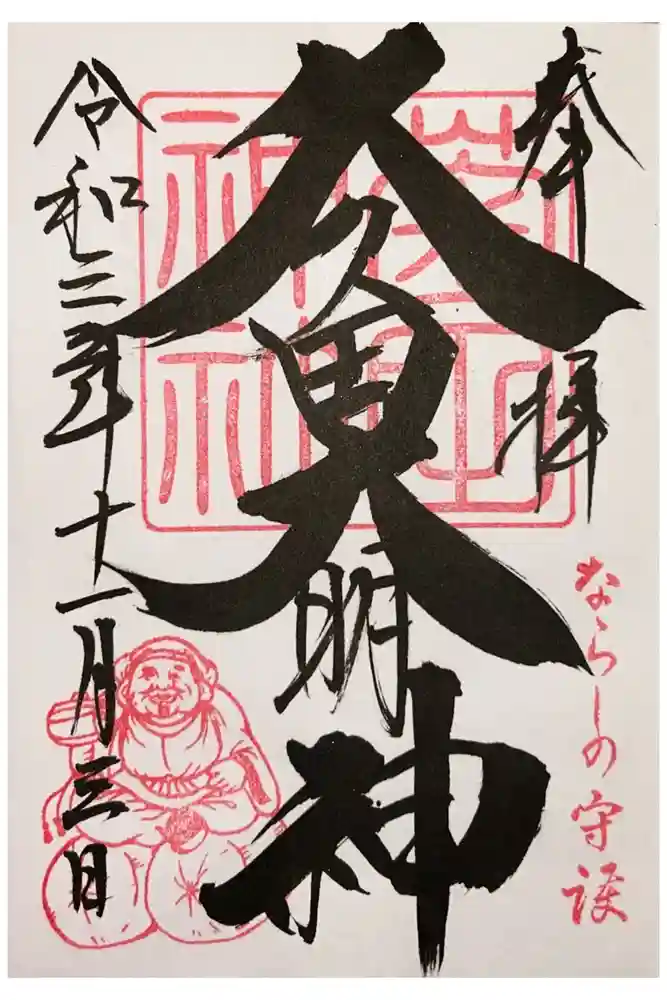 奉拝
ならしの守護
久久田大明神
令和三年十一月三日